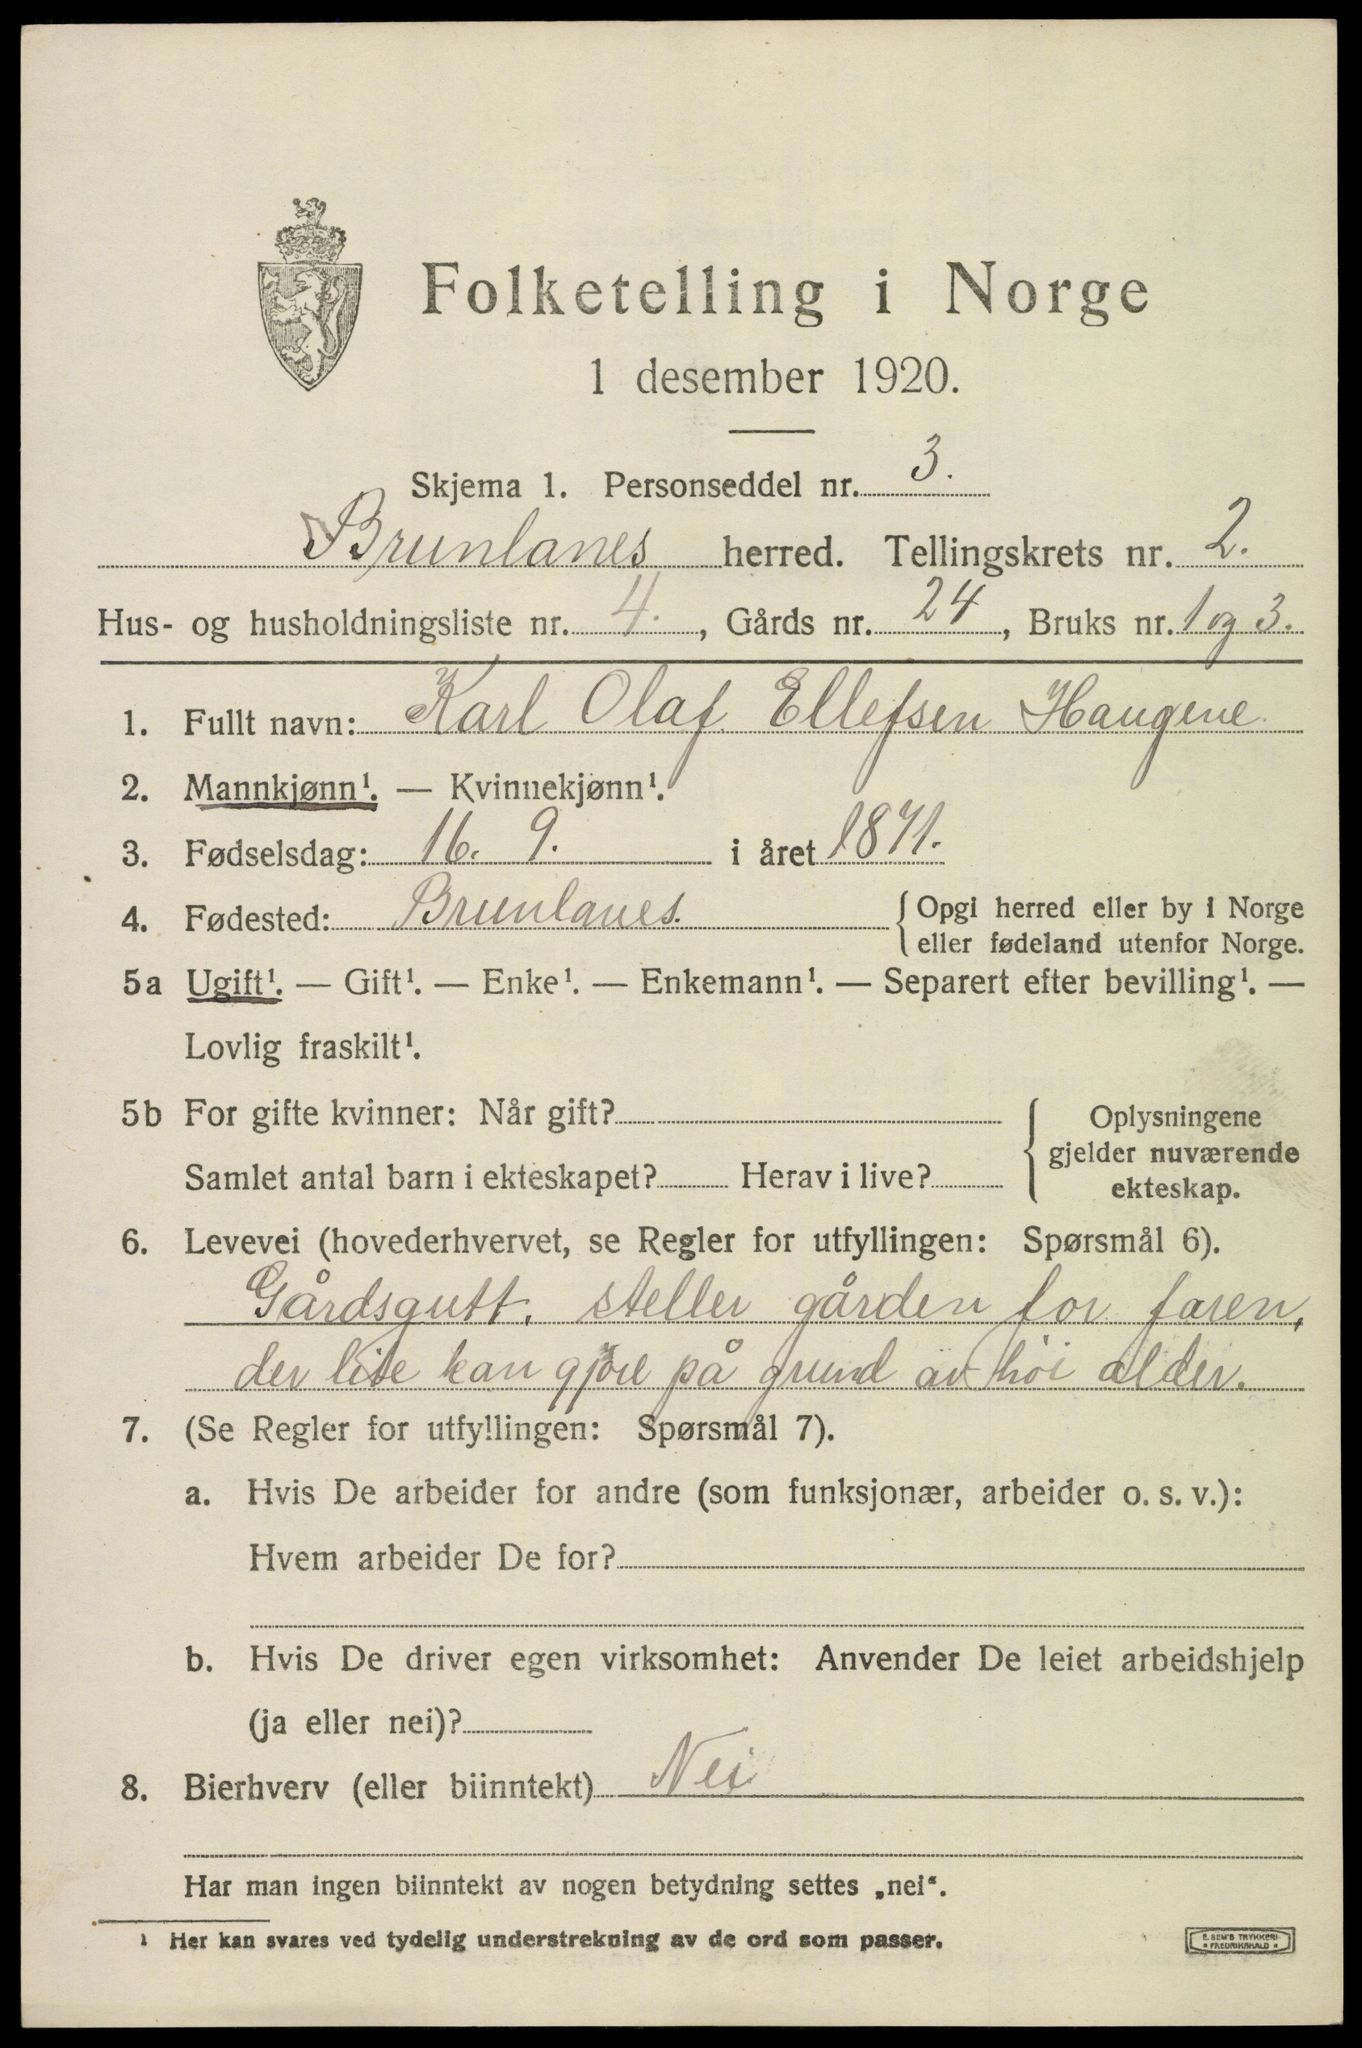 Folketelling i Norge
1 desember 1920.
Skjema 1. Personseddel nr. 3.
Brunlanes herred. Tellingskrets nr. 2.
Hus- og husholdningsliste nr. 4., Gårds nr. 24, Bruks nr. 1 og 3.
1. Fullt navn: Karl Olaf Ellefsen Haugene
2. Mannkjønn¹. — Kvinnekjønn¹.
3. Fødselsdag: 16. 9. i året 1871.
4. Fødested: Brunlanes. { Opgi herred eller by i Norge
eller fødeland utenfor Norge.
5a Ugift¹. — Gift¹. — Enke¹. — Enkemann¹. — Separert efter bevilling¹. —
Lovlig fraskilt¹.
5b For gifte kvinner: Når gift?
Samlet antal barn i ekteskapet? Herav i live?
{ Oplysningene
gjelder nuværende
ekteskap.
6. Levevei (hovederhvervet, se Regler for utfyllingen: Spørsmål 6).
Gårdsgutt, steller gården for faren,
der lite kan gjøre på grund av høi alder.
7. (Se Regler for utfyllingen: Spørsmål 7).
a. Hvis De arbeider for andre (som funksjonær, arbeider o. s. v.):
Hvem arbeider De for?
b. Hvis De driver egen virksomhet: Anvender De leiet arbeidshjelp
(ja eller nei)?
8. Bierhverv (eller biinntekt) Nei
Har man ingen biinntekt av nogen betydning settes „nei“.
¹ Her kan svares ved tydelig understrekning av de ord som passer.
E. SEM'S TRYKKERI
• FREDRIKSHALD •